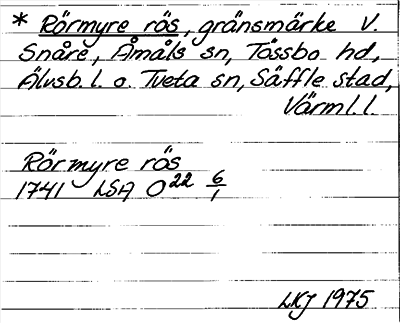 * Rörmyre rös, gränsmärke V.
Snåre, Åmåls sn, Tössbo hd,
Älvsb. l. o. Tveta sn, Säffle stad,
Värml. l.
Rörmyre rös
1741 LSA O22 6/1
LKJ 1975